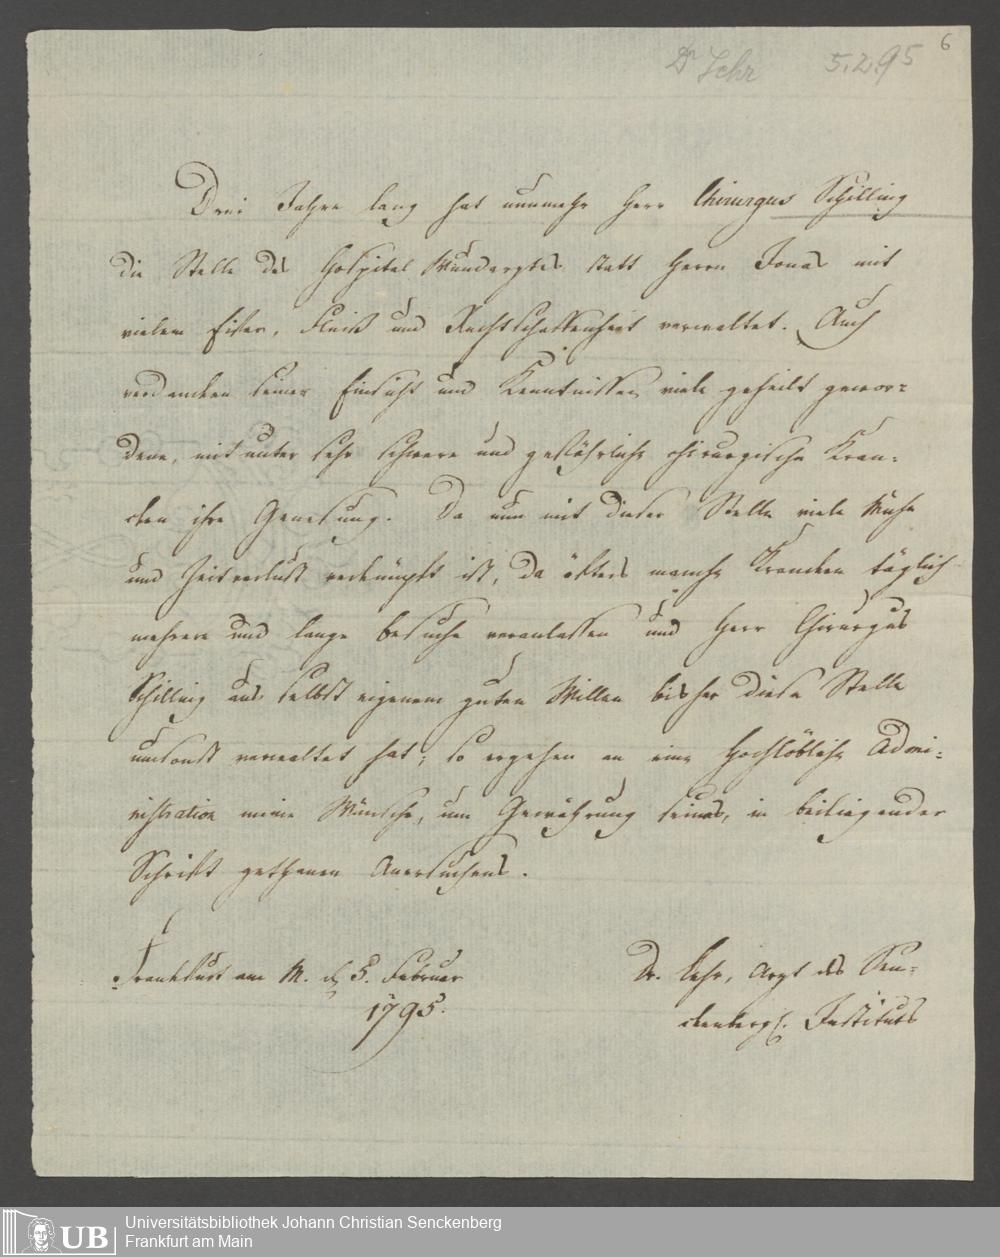 6
Dr Lehr 5.2.95
Drei Jahre lang hat nunmehr Herr Chirurgus Schilling
die Stelle des Hospital Wundarztes statt Herrn Jonas mit
vielem Eifer, Fleiß und Rechtschaffenheit verwaltet. Auch
verdancken seiner Einsicht und Kenntnissen viele geheilt gewor=
dene, mitunter sehr schwere und gefährliche chirurgische Kran=
cken ihre Genesung. Da nun mit dieser Stelle viele Mühe
und Zeitverlust verknüpft ist, da öfters manche Krancken täglich
mehrere und lange Besuche veranlassen und Herr Chirurgus
Schilling aus selbst eigenem guten Willen bisher diese Stelle
umsonst verwaltet hat; so ergehen an eine Hochlöbliche Admi=
nistration meine Wünsche, um Gewährung seines, in beiliegender
Schrift gethanen Ansuchens.
Franckfurt am M. d. 5. Februar
1795.
Dr. Lehr, Arzt des Sen=
ckenberg. Instituts
UB
Universitätsbibliothek Johann Christian Senckenberg
Frankfurt am Main